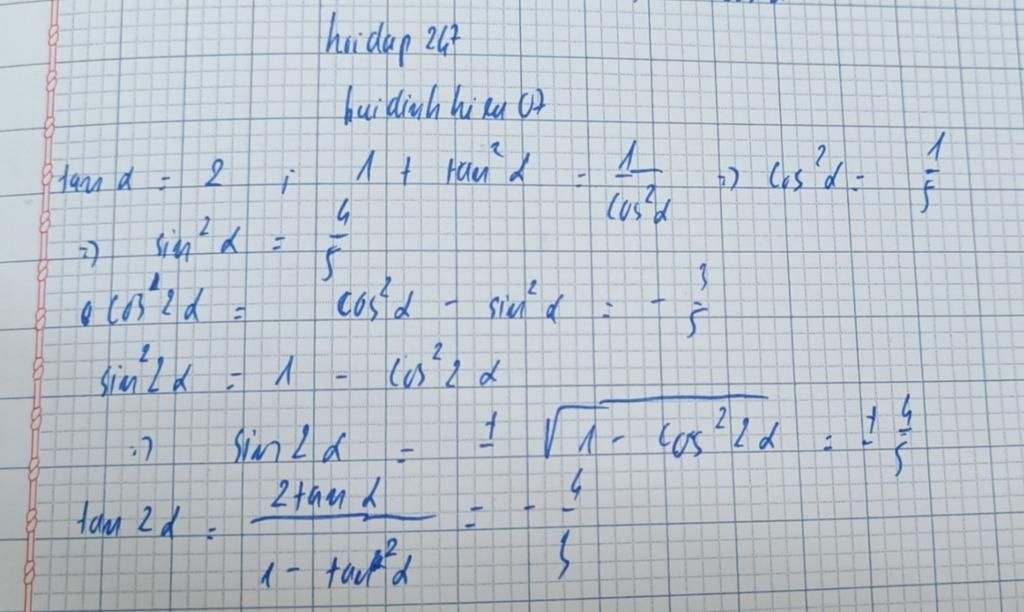 hoidap 247
buidinhhieu 07
tan α = 2 ; 1 + tan² α = 1/cos²α => cos²α = 1/5
=> sin² α = 4/5
cos² 2α = cos²α - sin²α = - 3/5
sin² 2α = 1 - cos² 2α
=> sin 2α = ± √(1 - cos² 2α) = ± 4/5
tan 2α = 2tan α/(1 - tan² α) = - 4/3